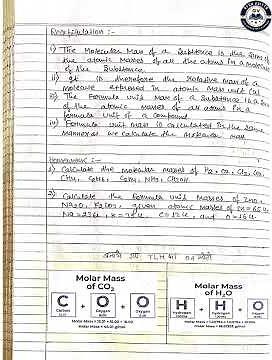 Recapitulation :-
i) The Molecular Mass of a substance is the sum of
the atomic masses of all the atoms in a molecule
of the substance.
ii) It is therefore the relative mass of a
molecule expressed in atomic mass unit (u)
iii) The formula unit mass of a substance is a sum
of the atomic masses of all atoms in a
formula unit of a compound
iv) Formula unit mass is calculated in the same
manner as we calculate the molecular mass
Homework :-
1) Calculate the molecular masses of H2, O2, Cl2, CO2,
CH4, C2H6, C2H4, NH3, CH3OH
2) Calculate the formula unit masses of ZnO,
Na2O, K2CO3, given atomic masses of Zn = 65 u,
Na = 23 u, K = 39 u, C = 12 u, and O = 16 u.
TLM
Molar Mass
of CO2
C + O + O
Carbon Oxygen Oxygen
Molar Mass
of H2O
H + H + O
Hydrogen Hydrogen Oxygen